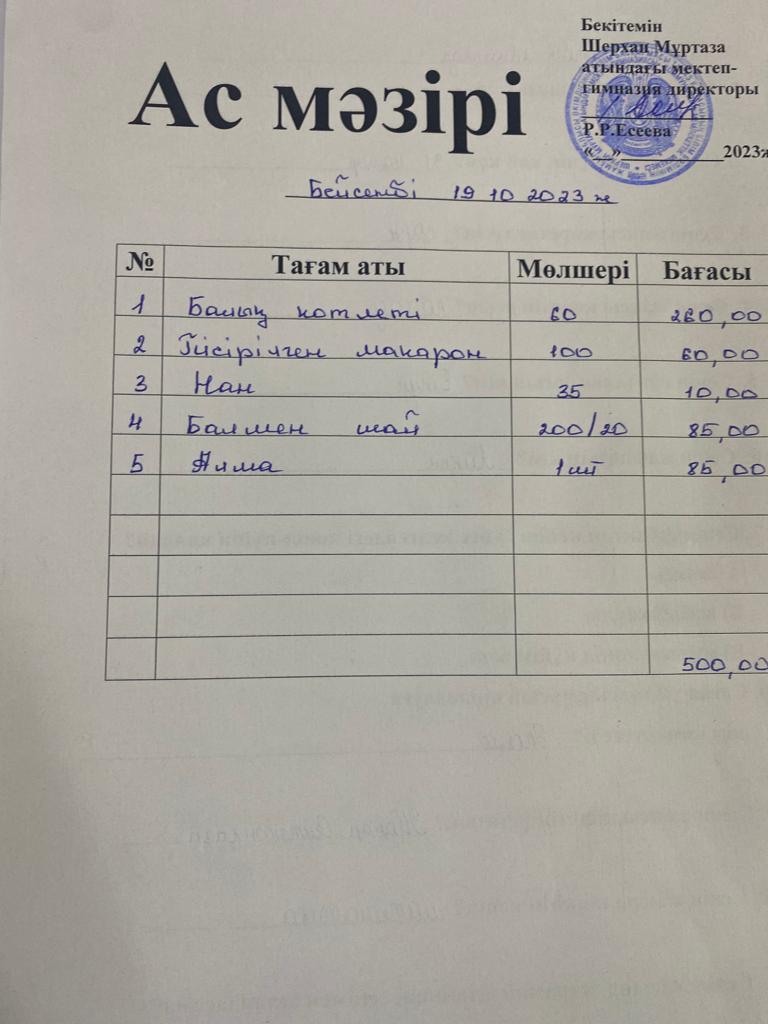 Бекітемін
Шерхан Мұртаза
атындағы мектеп-
гимназия директоры
Р.Р.Есеева
«__»___________2023ж
Ас мәзірі
Бейсенбі 19 10 2023 ж
№ Тағам аты Мөлшері Бағасы
1 Балық котлеті 60 260,00
2 Пісірілген макарон 100 60,00
3 Нан 35 10,00
4 Балмен шай 200/20 85,00
5 Алма 1шт 85,00
500,00